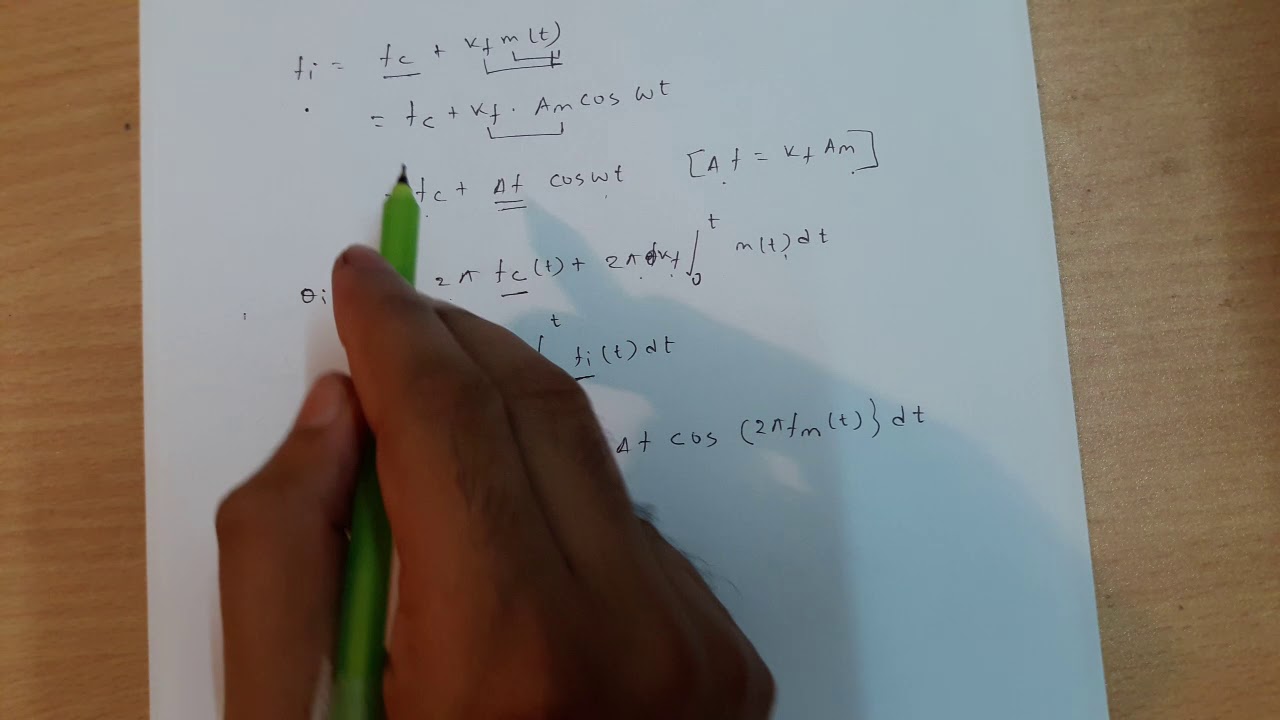 fi = fc + Kf m(t)
= fc + Kf . Am cos wt
fc + Δf cos wt [Δf = Kf Am]
θi 2π fc(t) + 2π Kf ∫₀ᵗ m(t) dt
∫ᵗ fi(t) dt
Δf cos (2πfm(t)} dt